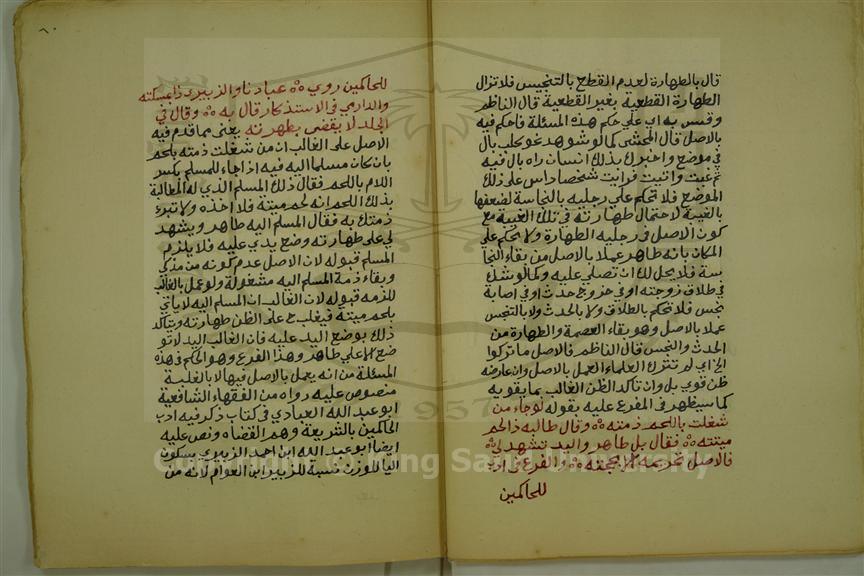 قال بالطهارة لعدم القطع بالتنجيس فلا تزال
الطهارة القطعية بغير القطعية قال الناظم
وقس به اي علي حكم هذه المسئلة فاحكم فيه
بالاصل قال المحشي كما لو شوهد نحو كلب بال
في موضع واخبرك بذلك انسان راه بال فيه
ثم غبت واتيت فرايت شخصا داس علي ذلك
الموضع فلا تحكم علي رجليه بالنجاسة لضعفها
بالغيبة لاحتمال طهارته في تلك الغيبة مع
كون الاصل في رجليه الطهارة ولا تحكم علي
المكان بانه طاهر عملا بالاصل من بقاء النجا
سة فلا يحل لك ان تصلي عليه وكما لو شك
في طلاق زوجته او في خروج حدث او في اصابة
نجس فلا تحكم بالطلاق ولا بالحدث ولا بالتنجس
عملا بالاصل وهو بقاء العصمة والطهارة من
الحدث والنجس قال الناظم فالاصل ما تركوا
الخ اي لم تترك العلماء العمل بالاصل وان عارضه
ظن قوي بل وان تاكد الظن الغالب بما يقويه
كما سيظهر في المفرع عليه بقوله لو جاء من
شغلت باللحم ذمته وقال طالبه ذا لحم
ميتته فقال بل طاهر واليد تشهد لي
فالاصل تحريمه والفرع في ادب
للحاكمين
للحاكمين روي عبادنا والزبيري ذا عسكته
والدارمي في الاستذكار قال به وقال في
الجلد لا يقضي بطهرته يعني مما قدم فيه
الاصل علي الغالب ان من شغلت ذمته بلحم
بان كان مسلما اليه فيه اذا جاء للمسلم بكسر
اللام باللحم فقال ذلك المسلم الذي له المطالبة
بذلك اللحم انه لحم ميتة فلا اخذه ولا تبرئ
ذمتك به فقال المسلم اليه طاهر ويشهد
لي علي طهارته وضع يدي عليه فلا يلزم
المسلم قبوله لان الاصل عدم كونه من مذكي
وبقاء ذمة المسلم اليه مشغولة ولو عمل بالغالب
للزمه قبوله لان الغالب ان المسلم اليه لا ياتي
بلحم ميتة فيغلب علي الظن طهارته ويتاكد
ذلك بوضع اليد عليه فان الغالب اليد لا تو
ضع الا علي طاهر وهذا الفرع وهو الحكم في هذه
المسئلة من انه يعمل بالاصل فيها لا بالغلبة
منصوص عليه رواه من الفقهاء الشافعية
ابو عبد الله العبادي في كتاب ذكر فيه ادب
الحاكمين بالشريعة وهم القضاه ونص عليه
ايضا ابو عبد الله ابن احمد الزبيري بسكون
اليا للوزن نسبة للزبير ابن العوام لانه من
Copyright © King Saud University
1957